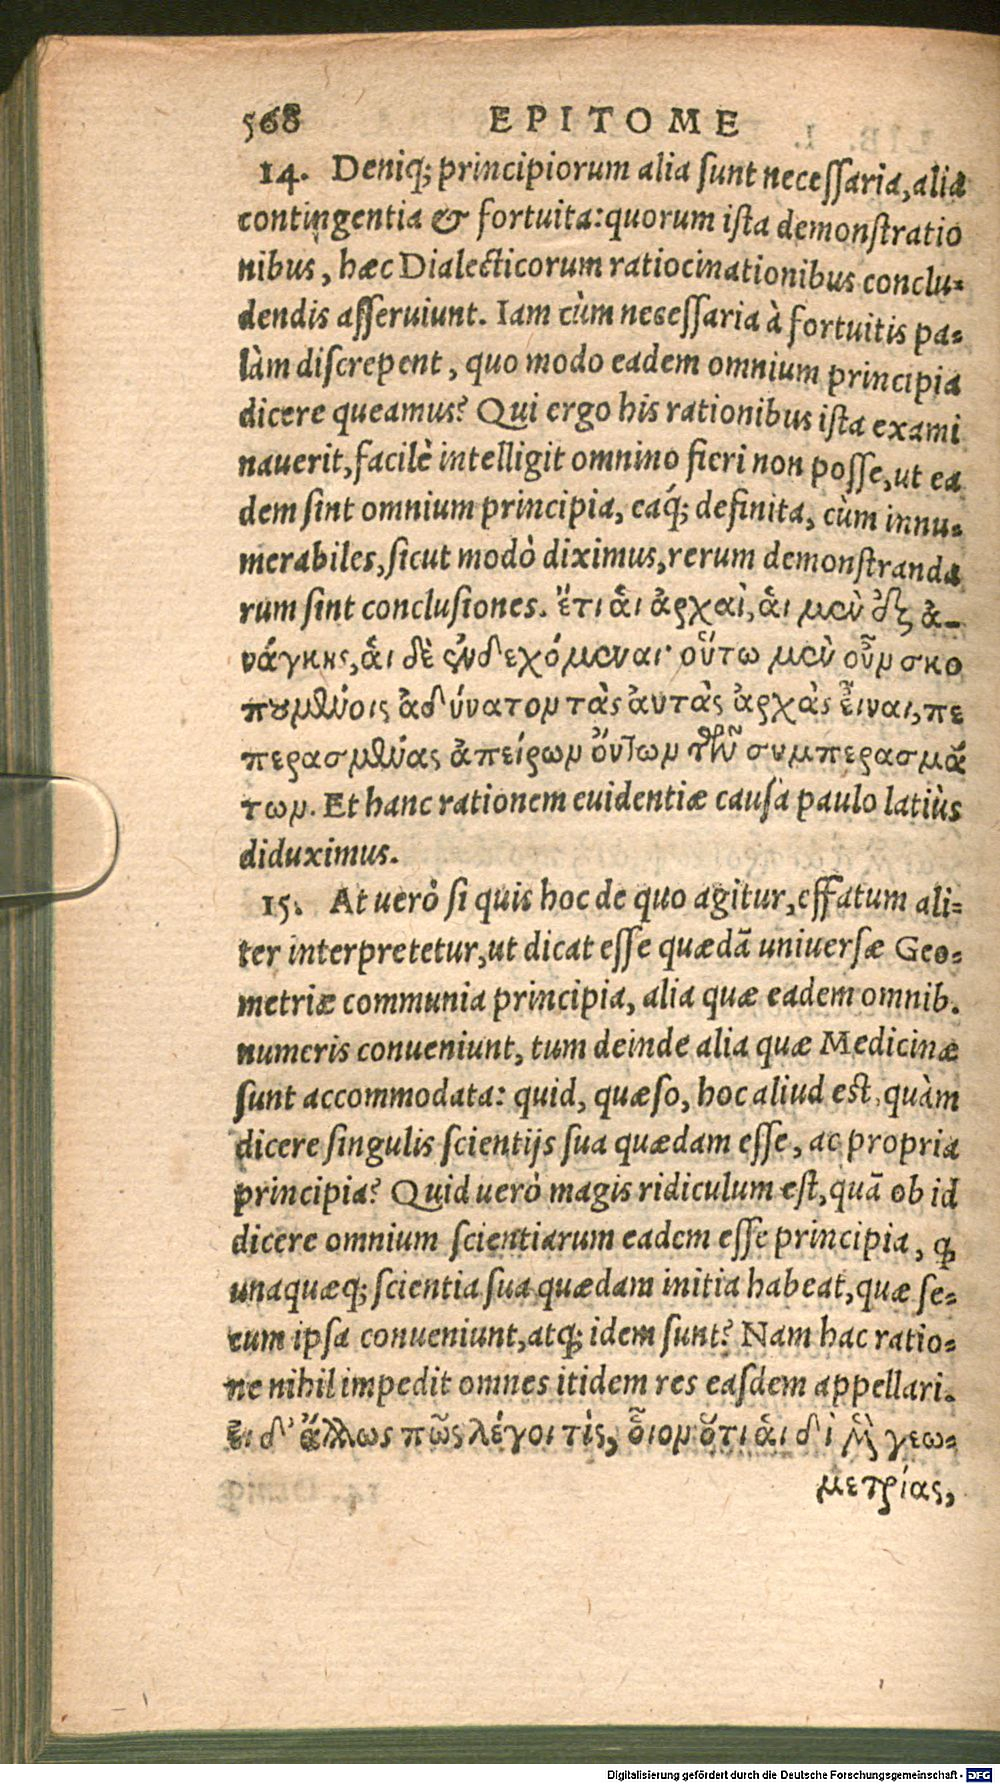 568 EPITOME
14. Deniq; principiorum alia sunt necessaria, alia
contingentia & fortuita: quorum ista demonstratio
nibus, hæc Dialecticorum ratiocinationibus conclu-
dendis asseruiunt. Iam cùm necessaria à fortuitis pa-
làm discrepent, quo modo eadem omnium principia
dicere queamus? Qui ergo his rationibus ista exami
nauerit, facilè intelligit omnino fieri non posse, ut ea
dem sint omnium principia, eáq; definita, cùm innu-
merabiles, sicut modò diximus, rerum demonstranda
rum sint conclusiones. ἔτι ἁι ἀρχαὶ, ἁι μὲν ἐξ ἀ-
νάγκης, ἁι δὲ ἐνδεχόμεναι· οὕτω μὲν οὖν σκο
πουμένοις ἀδύνατον τὰς ἀυτὰς ἀρχὰς εἶναι, πε
περασμένας ἀπείρων ὄντων τῶν συμπερασμά
των. Et hanc rationem euidentiæ causa paulo latiùs
diduximus.
15. At uerò si quis hoc de quo agitur, effatum ali-
ter interpretetur, ut dicat esse quædā uniuersæ Geo-
metriæ communia principia, alia quæ eadem omnib.
numeris conueniunt, tum deinde alia quæ Medicinæ
sunt accommodata: quid, quæso, hoc aliud est, quàm
dicere singulis scientijs sua quædam esse, ac propria
principia? Quid uerò magis ridiculum est, quā ob id
dicere omnium scientiarum eadem esse principia, ꝙ
unaquæq; scientia sua quædam initia habeat, quæ se-
cum ipsa conueniunt, atq; idem sunt? Nam hac ratio-
ne nihil impedit omnes itidem res easdem appellari.
Ἐι δ' ἄλλως πῶς λέγοι τὶς, οἷον ὅτι ἁι δὶ τῆς γεω-
μετρίας,
Digitalisierung gefördert durch die Deutsche Forschungsgemeinschaft - DFG